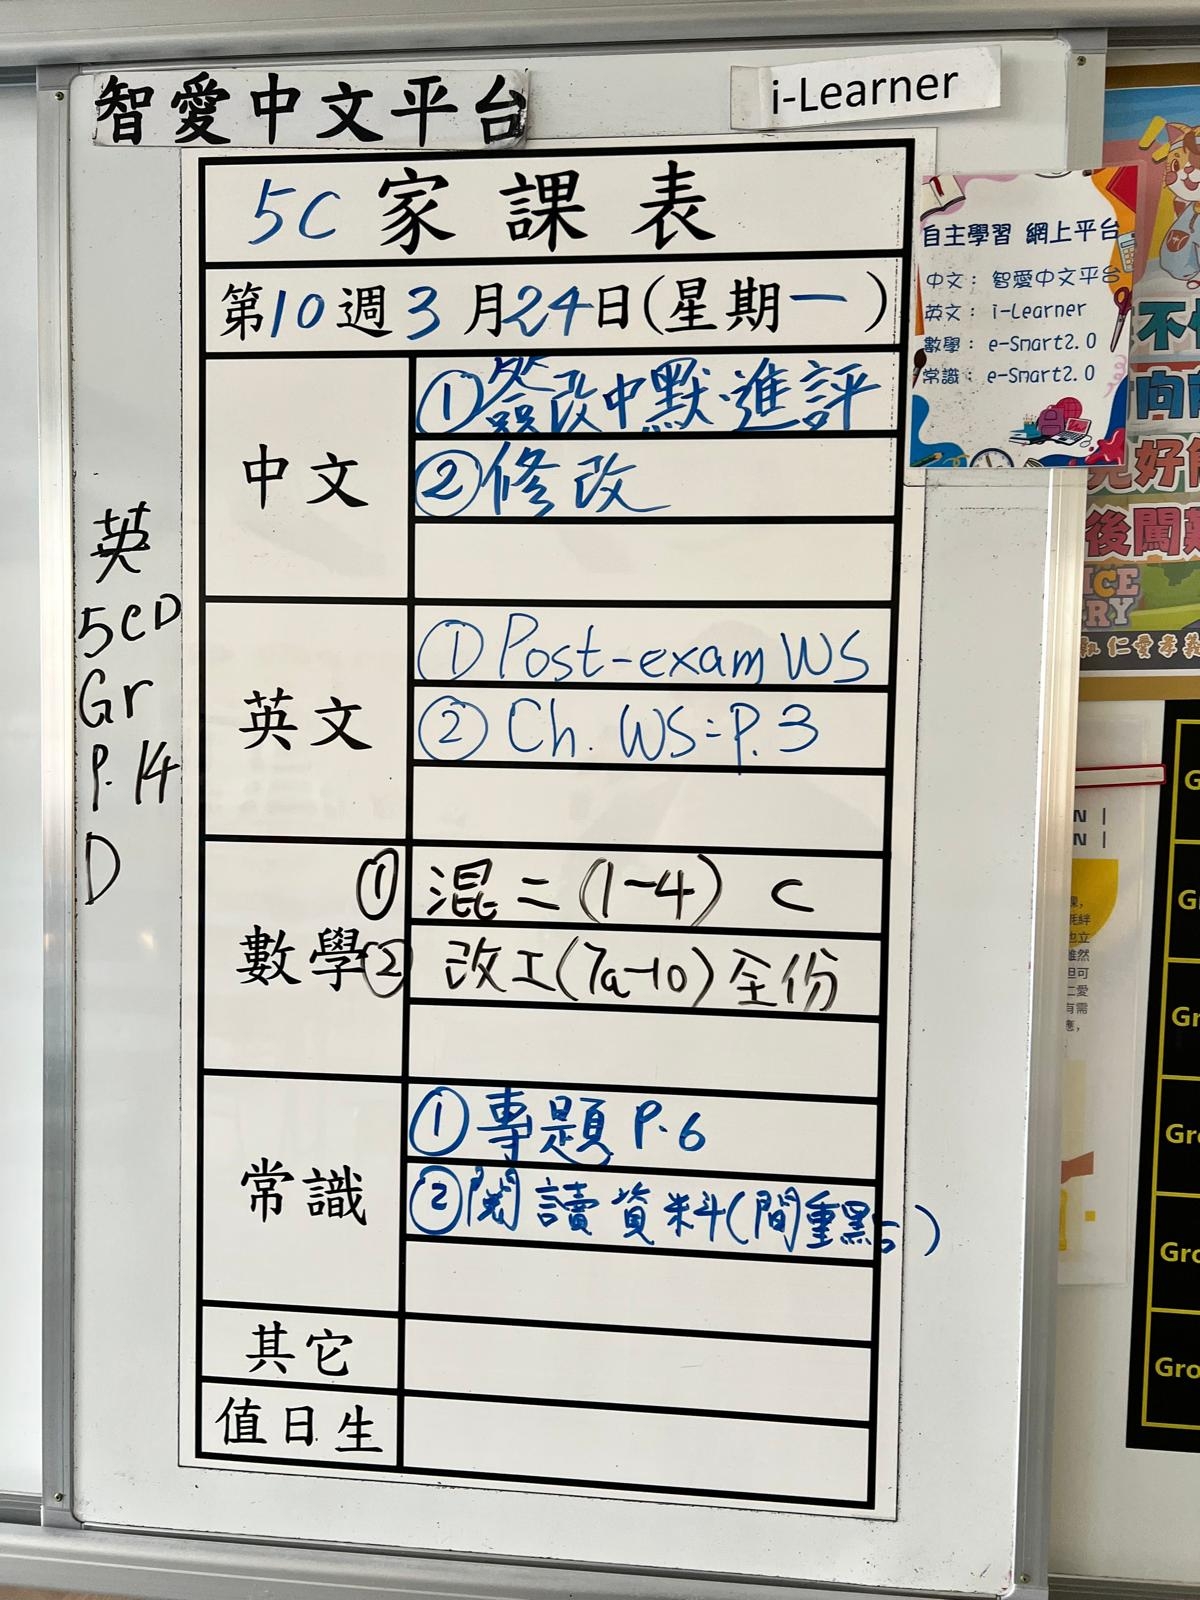 智愛中文平台
i-Learner
5C 家課表
第10週3月24日(星期一)
中文
①簽改中默、進評
②修改
英文
①Post-exam WS
②Ch. WS: P.3
數學
① 混二(1-4) C
② 改工(7a-10)全份
常識
①專題 P.6
②閱讀資料(間重點)
其它
值日生
英
5CD
Gr
P.14
D
自主學習 網上平台
中文： 智愛中文平台
英文： i-Learner
數學： e-Smart2.0
常識： e-Smart2.0